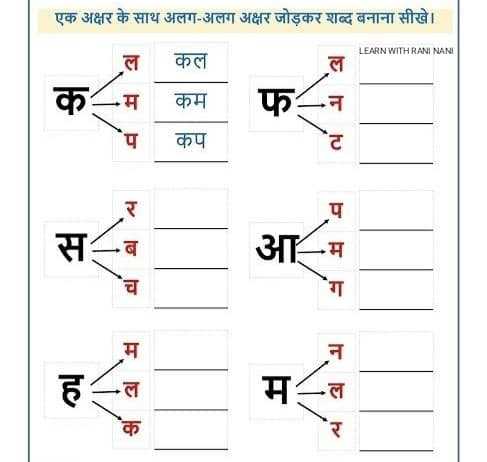 एक अक्षर के साथ अलग-अलग अक्षर जोड़कर शब्द बनाना सीखे।
LEARN WITH RANI NANI
क
ल कल
म कम
प कप
फ
ल
न
ट
स
र
ब
च
आ
प
म
ग
ह
म
ल
क
म
न
ल
र